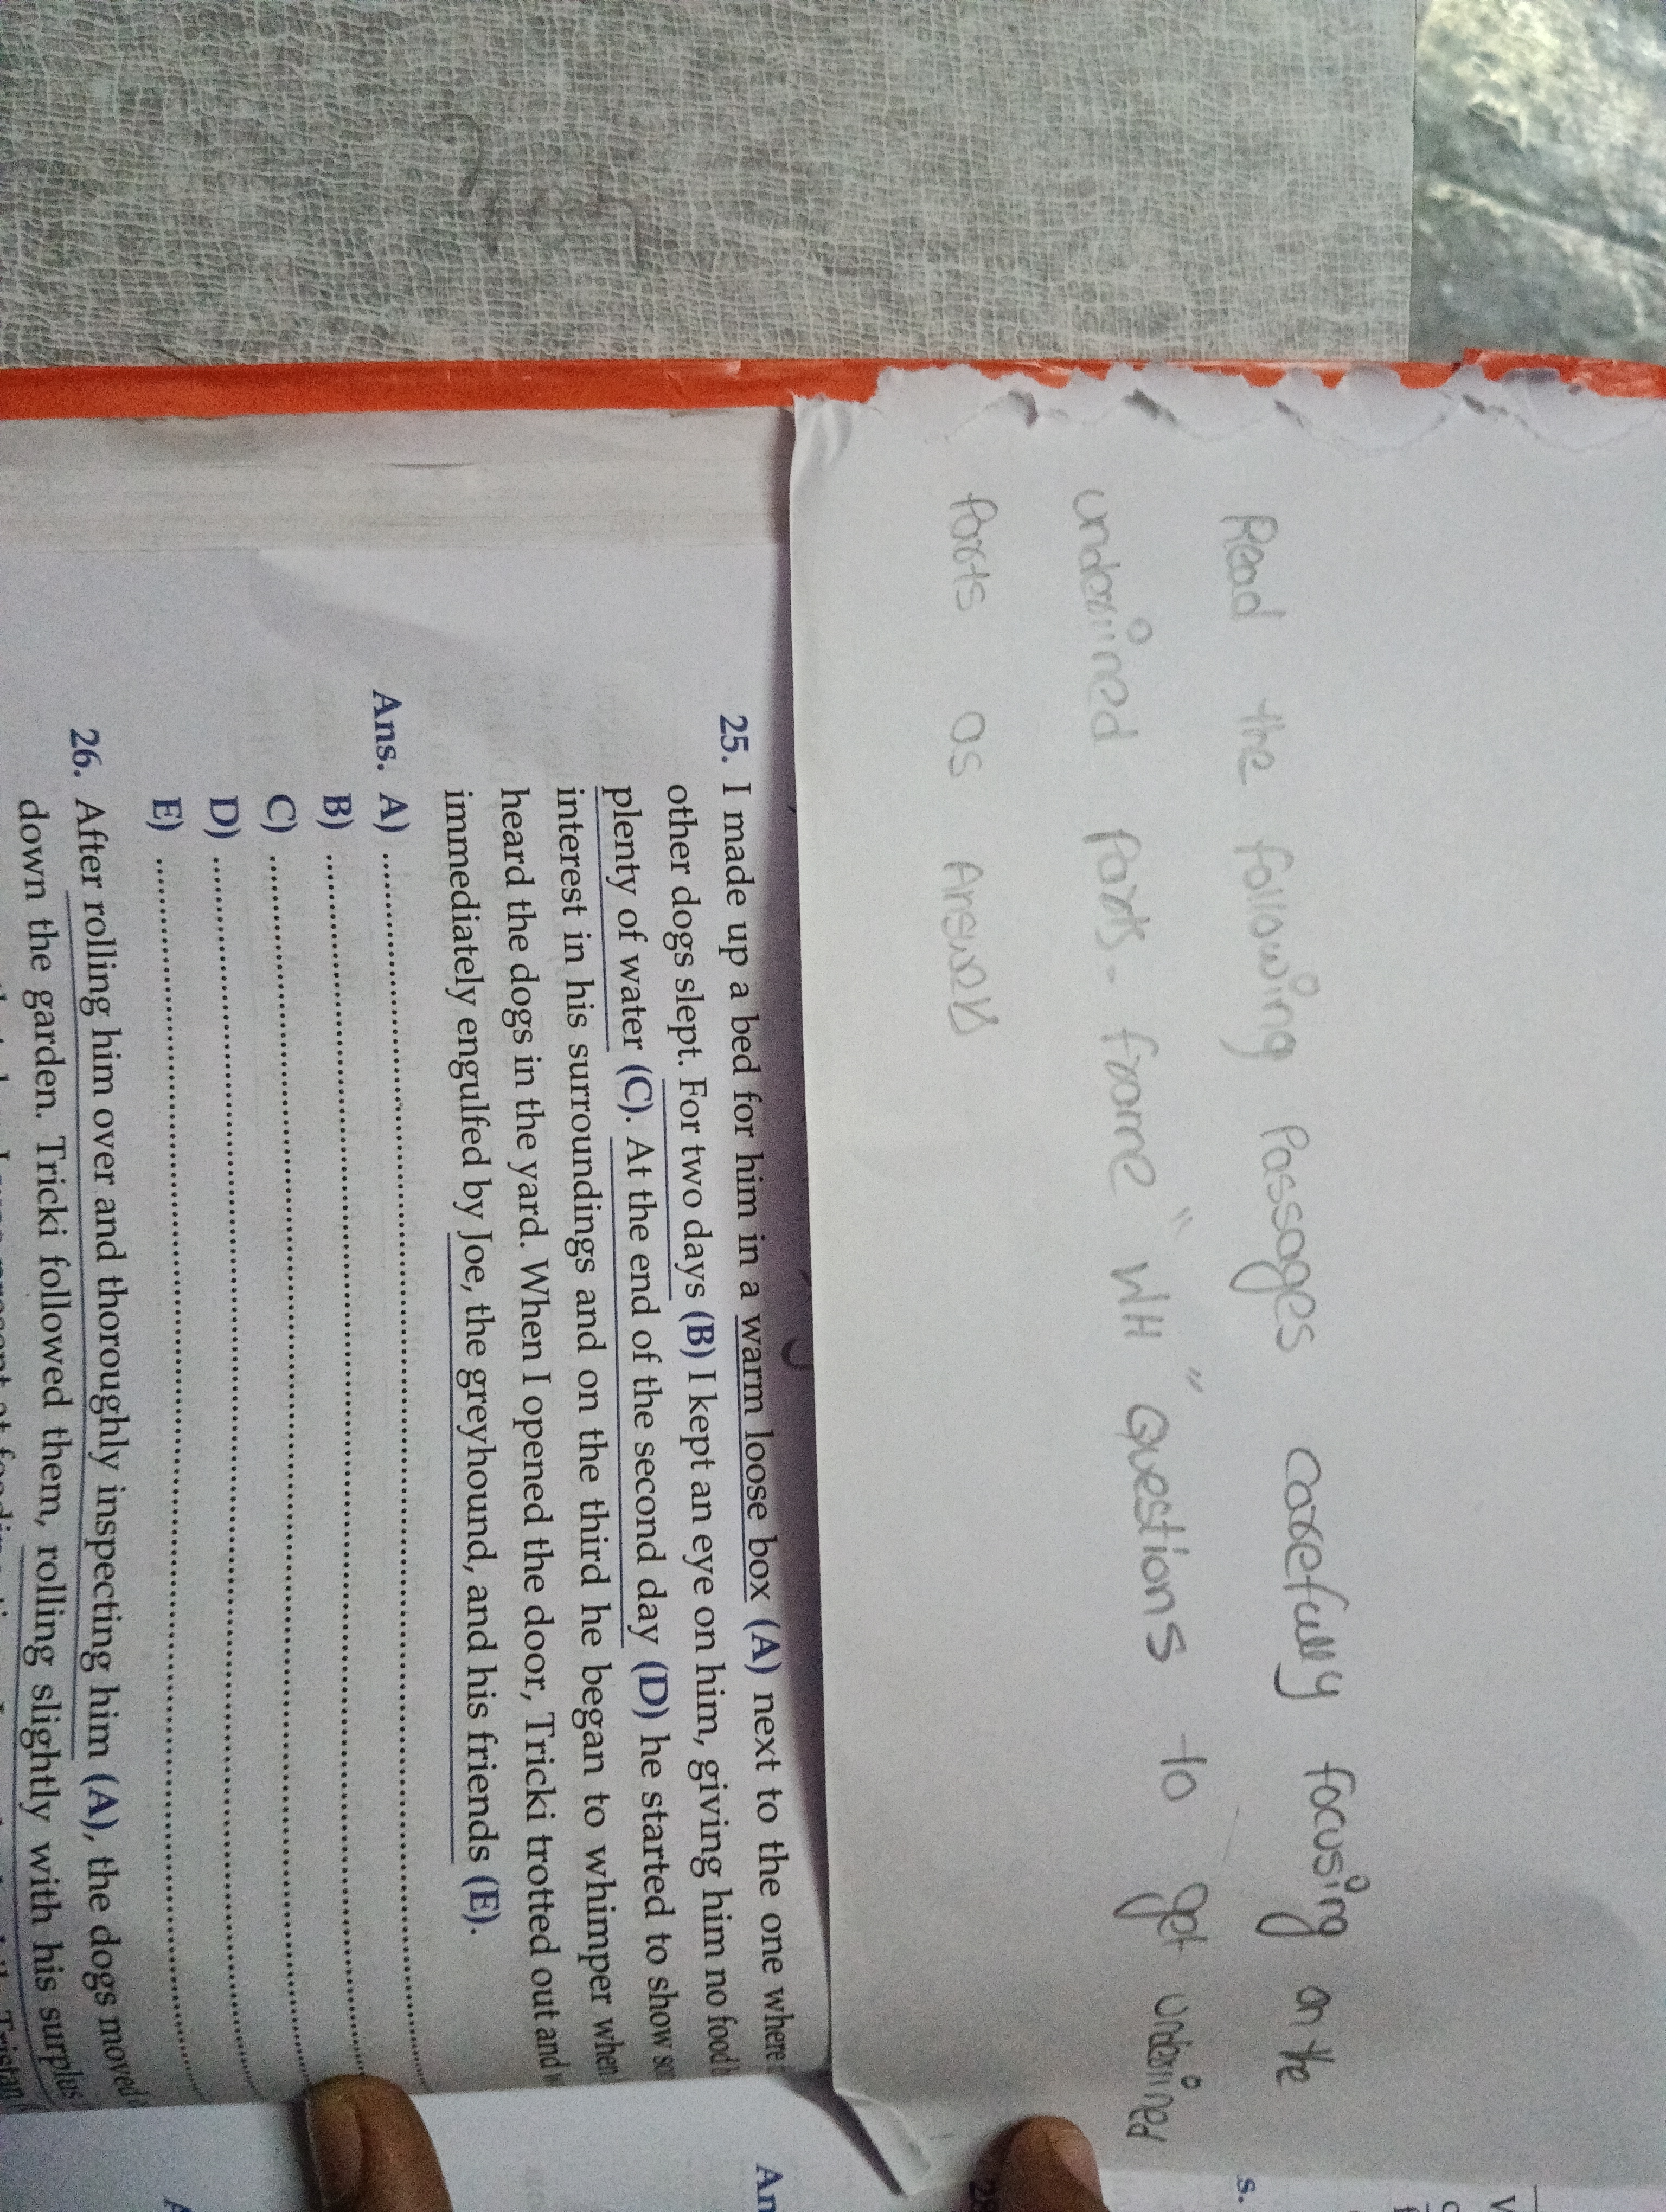 Read the following Passages carefully focusing on the
underlined parts. frame "WH" Questions to get underlined
Parts as Answers
25. I made up a bed for him in a warm loose box (A) next to the one where
other dogs slept. For two days (B) I kept an eye on him, giving him no food
plenty of water (C). At the end of the second day (D) he started to show
interest in his surroundings and on the third he began to whimper when
heard the dogs in the yard. When I opened the door, Tricki trotted out and
immediately engulfed by Joe, the greyhound, and his friends (E).
Ans. A) ....................
B) ....................
C) ....................
D) ....................
E) ....................
26. After rolling him over and thoroughly inspecting him (A), the dogs moved
down the garden. Tricki followed them, rolling slightly with his surplus
An
28
s.